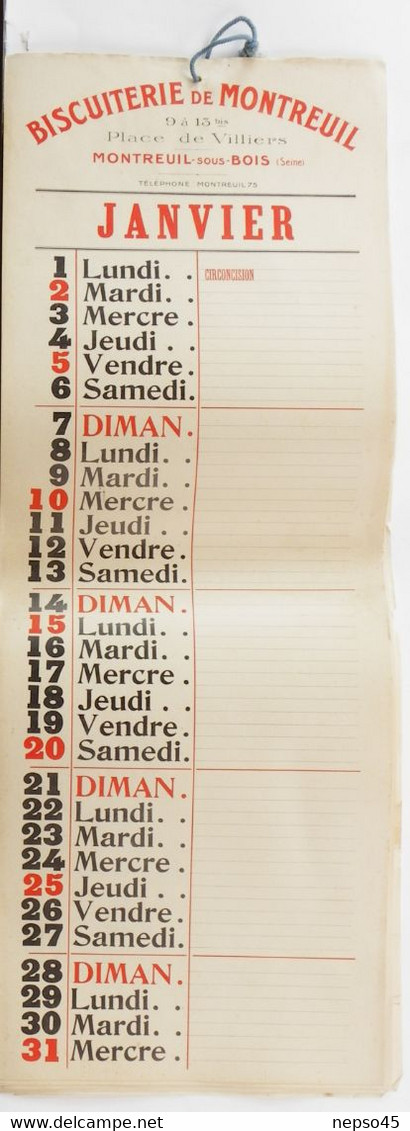 BISCUITERIE DE MONTREUIL
9 à 15 bis
Place de Villiers
MONTREUIL-SOUS-BOIS (Seine)
TÉLÉPHONE: MONTREUIL 75
JANVIER
1 Lundi. . CIRCONCISION
2 Mardi. .
3 Mercre .
4 Jeudi . .
5 Vendre.
6 Samedi.
7 DIMAN.
8 Lundi. .
9 Mardi. .
10 Mercre .
11 Jeudi . .
12 Vendre.
13 Samedi.
14 DIMAN.
15 Lundi. .
16 Mardi. .
17 Mercre .
18 Jeudi . .
19 Vendre.
20 Samedi.
21 DIMAN.
22 Lundi. .
23 Mardi. .
24 Mercre .
25 Jeudi . .
26 Vendre.
27 Samedi.
28 DIMAN.
29 Lundi. .
30 Mardi. .
31 Mercre .
www.delcampe.net
nepso45